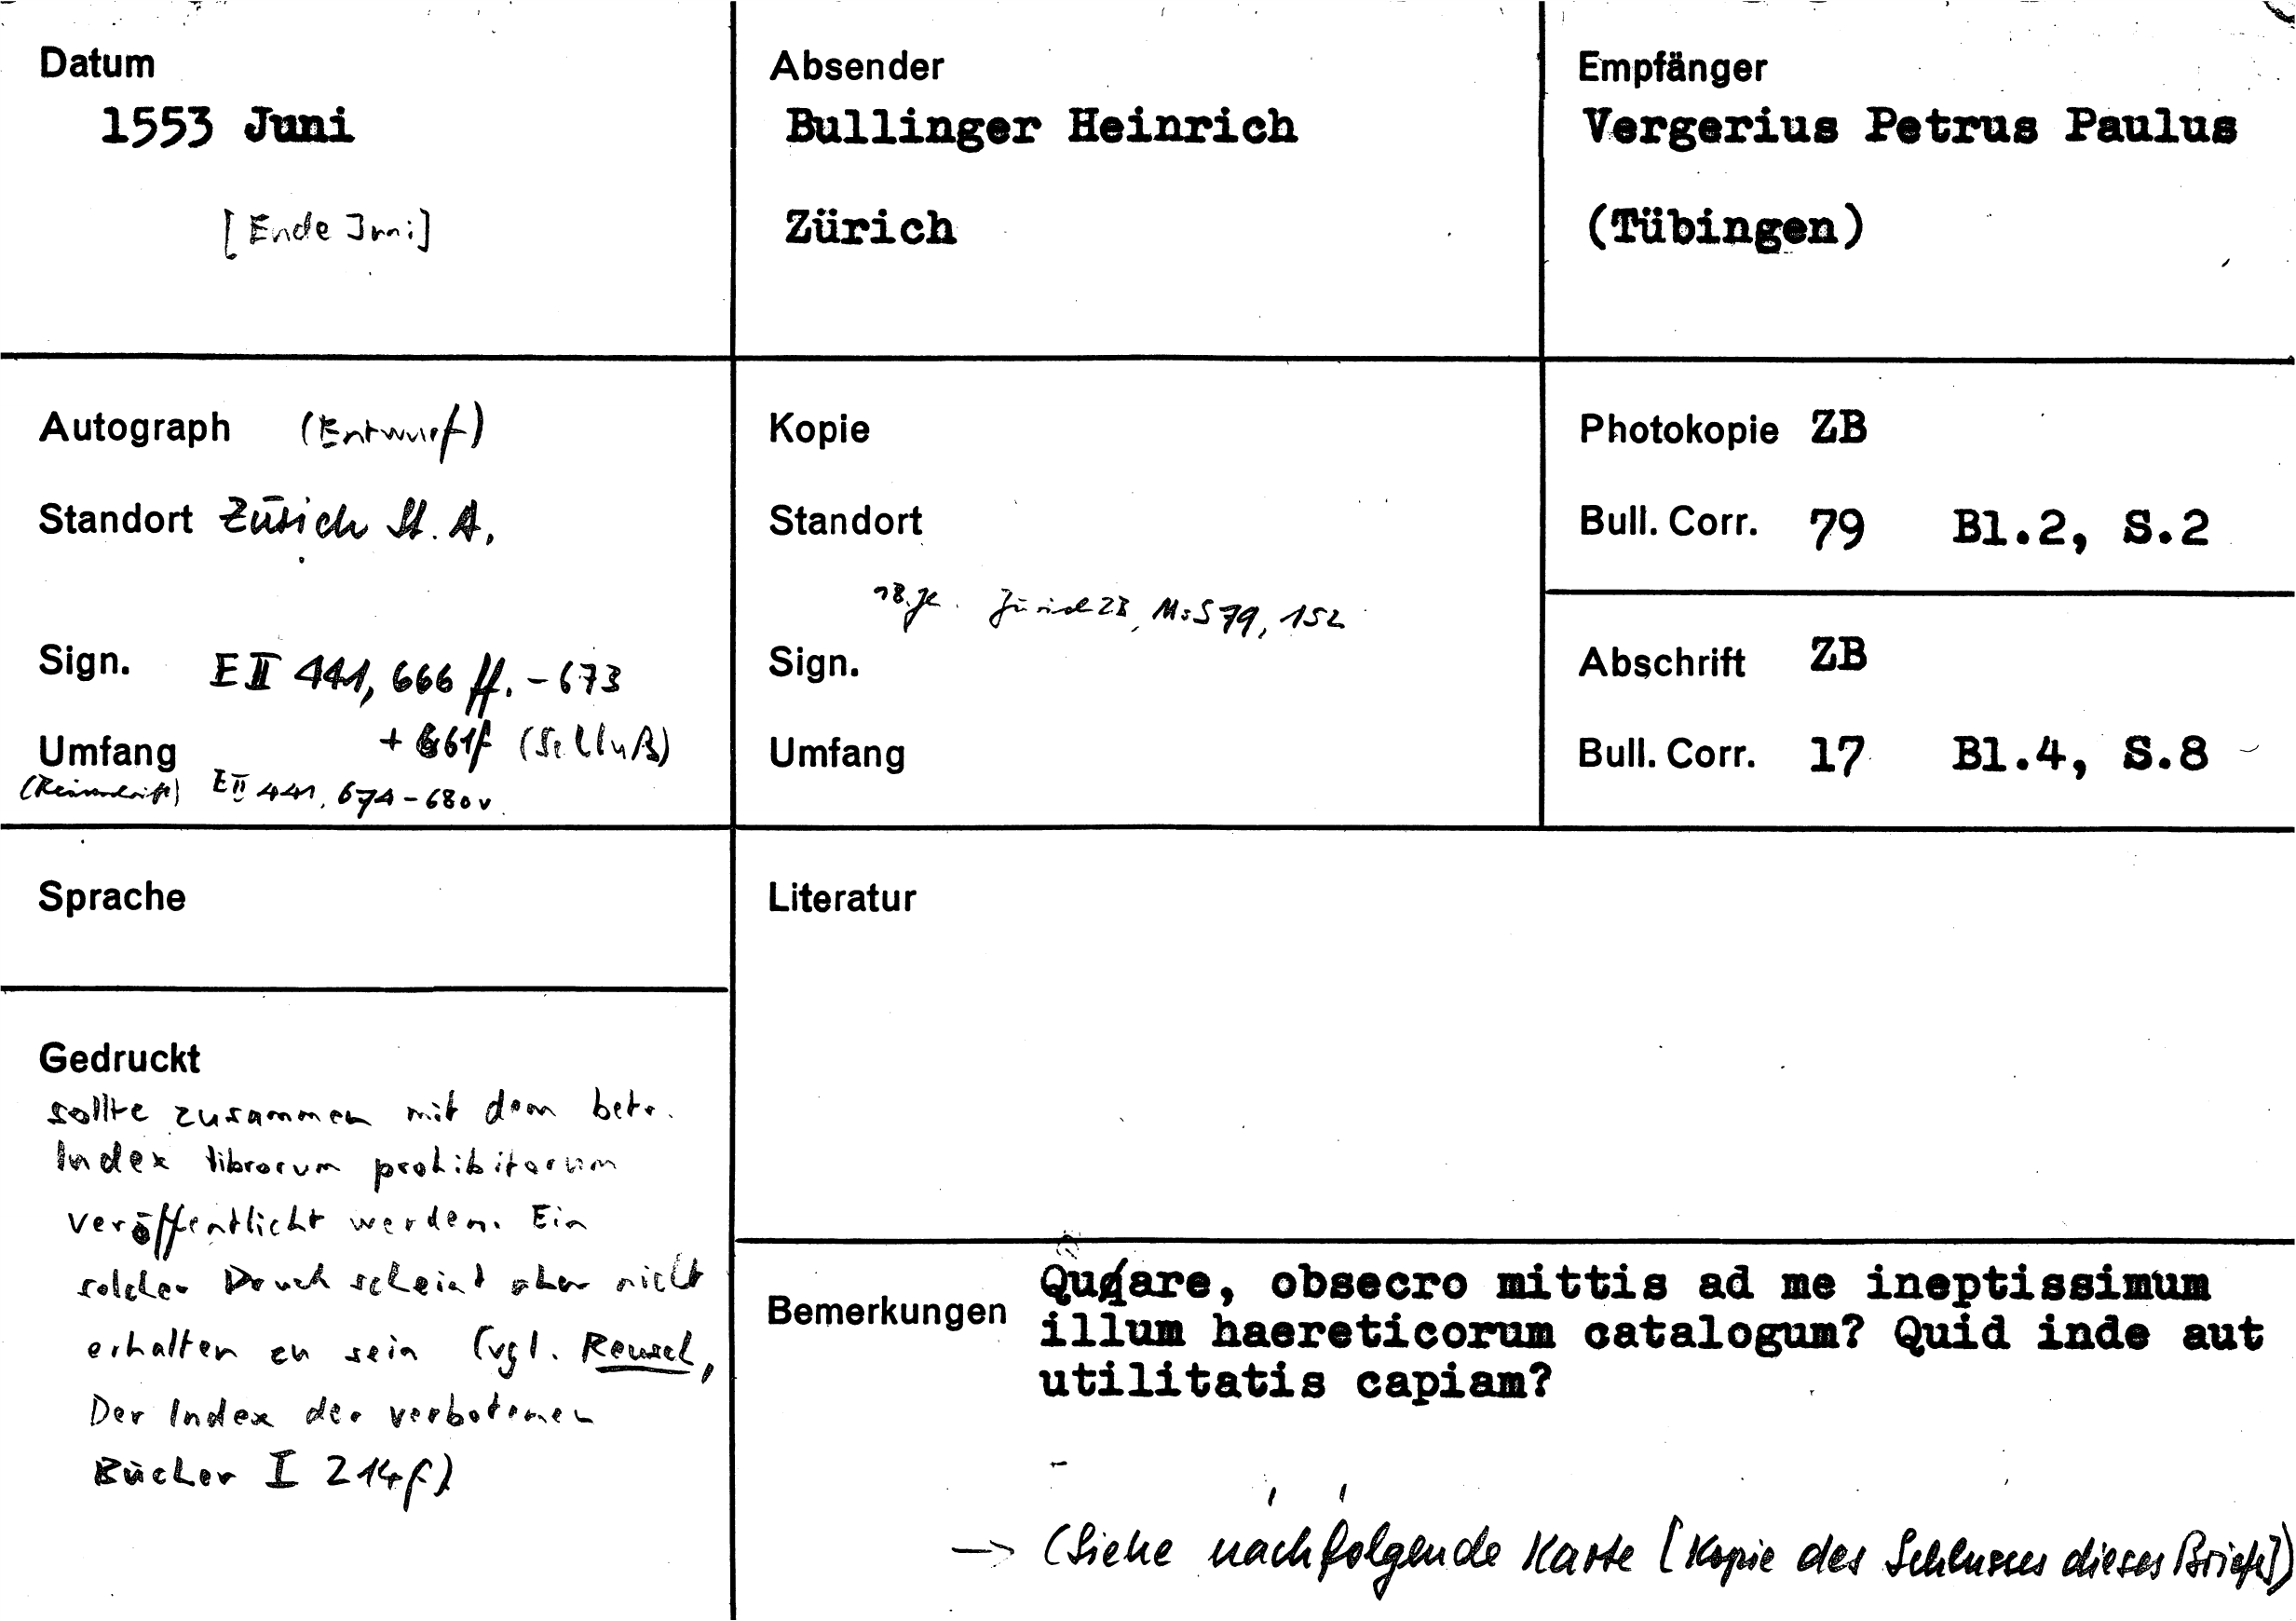 Datum
1553 Juni
[Ende Juni]
Absender
Bullinger Heinrich
Zürich
Empfänger
Vergerius Petrus Paulus
(Tübingen)
Autograph (Entwurf)
Standort Zürich St. A.
Sign. E II 441, 666 ff. - 673
+ 661f (Schluß)
Umfang
(Reinschrift) E II 441, 674 - 680v.
Kopie
Standort
18. Jh. Zürich ZB, Ms S 79, 152
Sign.
Umfang
Photokopie ZB
Bull. Corr. 79 Bl.2, S.2
Abschrift ZB
Bull. Corr. 17 Bl.4, S.8
Sprache
Gedruckt
sollte zusammen mit dem betr.
Index librorum prohibitorum
veröffentlicht werden. Ein
solcher Druck scheint aber nicht
erhalten zu sein (vgl. Reusch,
Der Index der verbotenen
Bücher I 214f)
Literatur
Bemerkungen
Quare, obsecro mittis ad me ineptissimum
illum haereticorum catalogum? Quid inde aut
utilitatis capiam?
→ (Siehe nachfolgende Karte [Kopie des Schlusses dieses Briefs])